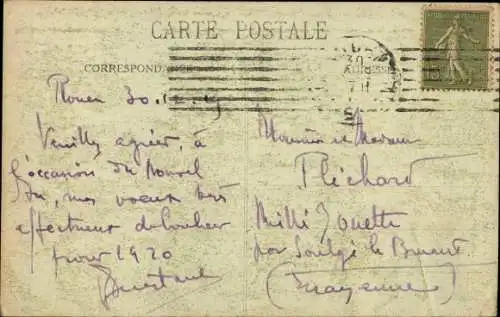 CARTE POSTALE
CORRESPONDANCE
ADRESSE
Rouen 30.12.19
Veuillez agréer, à
l'occasion du Nouvel
An, mes voeux très
affectueux de bonheur
pour 1920
Monsieur et Madame
Pléchard
par Soulgé le Bruant
(Mayenne)
15